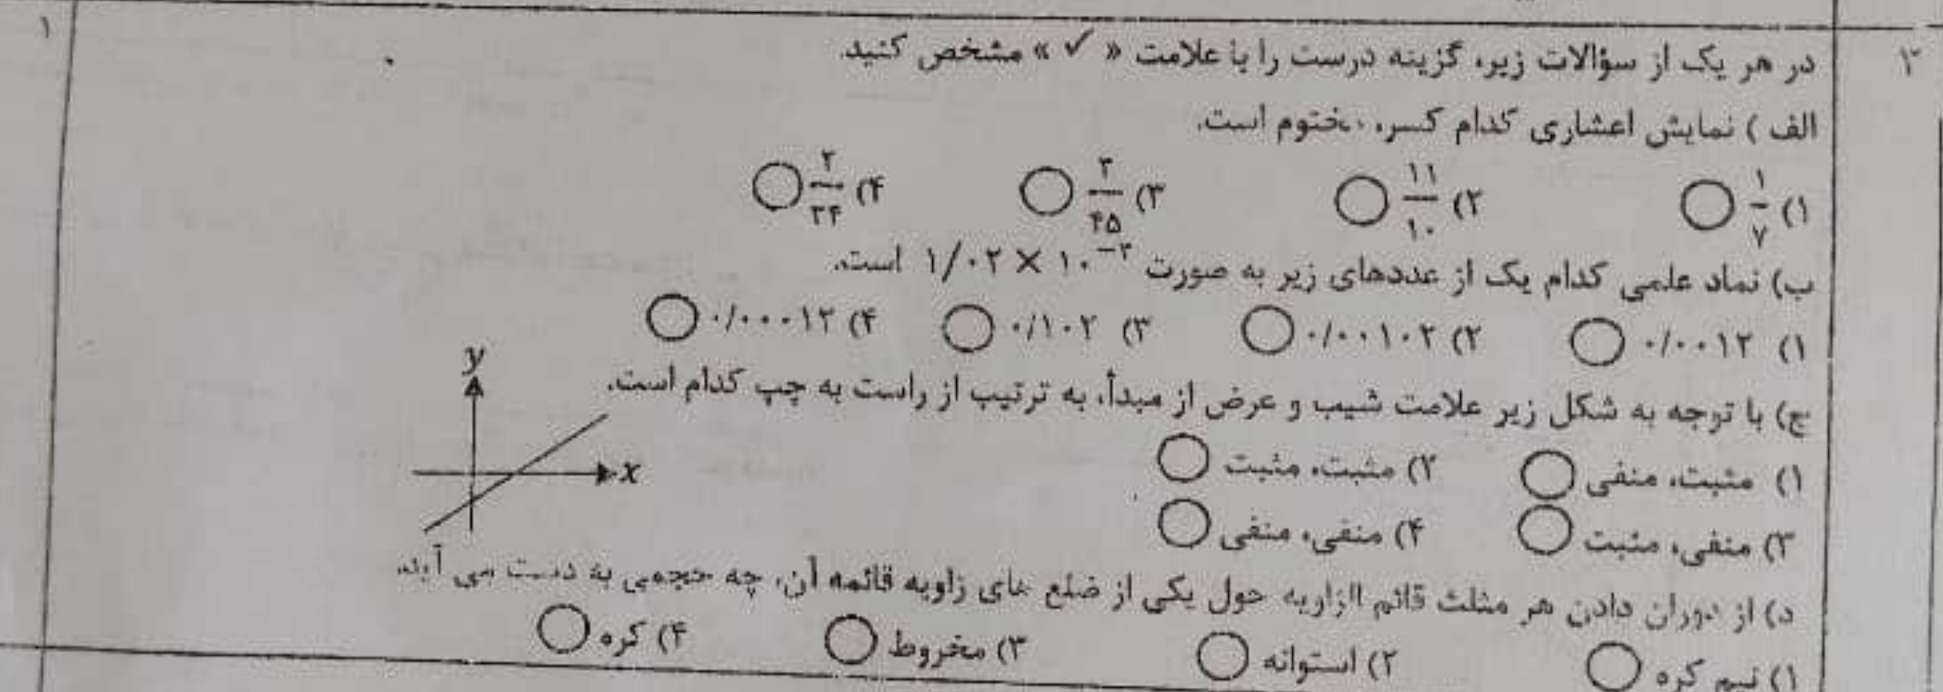 ۳
۱
در هر یک از سؤالات زیر، گزینه درست را با علامت « ✓ » مشخص کنید.
الف ) نمایش اعشاری کدام کسر، مختوم است.
۱) ۱/۷ ۲) ۱۱/۱۰ ۳) ۳/۴۵ ۴) ۲/۲۴
ب) نماد علمی کدام یک از عددهای زیر به صورت ۱/۰۲ × ۱۰^−۳ است.
۱) ۰/۰۰۱۲ ۲) ۰/۰۰۱۰۲ ۳) ۰/۱۰۲ ۴) ۰/۰۰۰۱۲
ج) با توجه به شکل زیر علامت شیب و عرض از مبدأ، به ترتیب از راست به چپ کدام است.
y
x
۱) مثبت، منفی ۲) مثبت، مثبت
۳) منفی، مثبت ۴) منفی، منفی
د) از دوران دادن هر مثلث قائم الزاویه حول یکی از ضلع های زاویه قائمه آن، چه حجمی به دست می آید.
۱) نیم کره ۲) استوانه ۳) مخروط ۴) کره